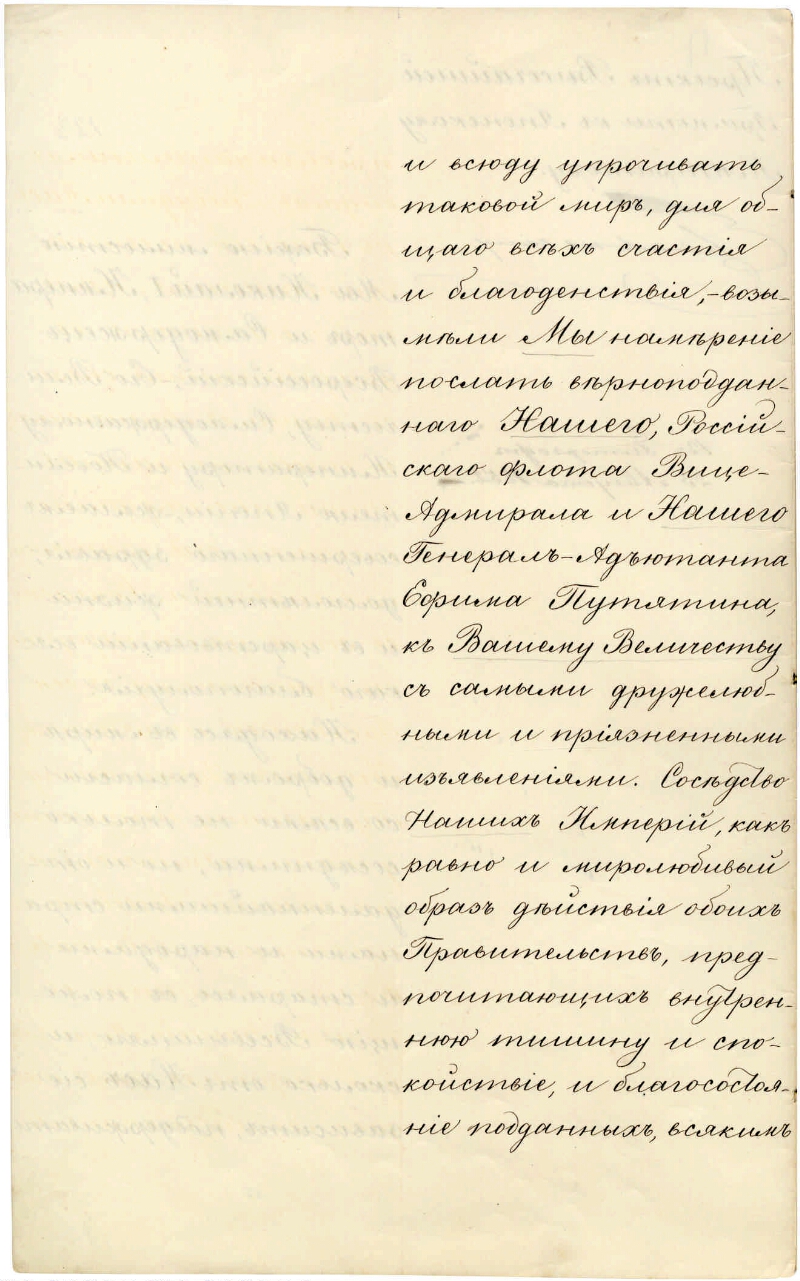 и всюду упрочивать
таковой миръ, для об-
щаго всѣхъ счастія
и благоденствія,-возы-
мѣли Мы намѣреніе
послать вѣрноподдан-
наго Нашего, Россій-
скаго флота Вице-
Адмирала и Нашего
Генералъ-Адъютанта
Ефима Путятина,
къ Вашему Величеству
съ самыми дружелюб-
ными и пріязненными
изъявленіями. Сосѣдство
Нашихъ Имперій, какъ
равно и миролюбивый
образъ дѣйствія обоихъ
Правительствъ, пред-
почитающихъ внутрен-
нюю тишину и спо-
койствіе, и благосостоя-
ніе подданныхъ, всякимъ